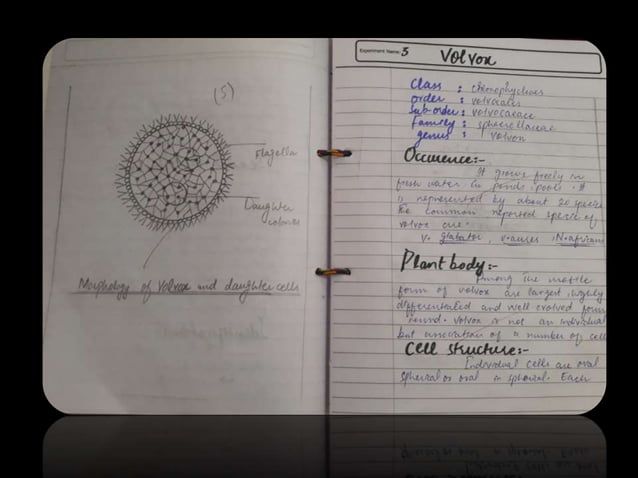 (5)
Flagella
Daughter
colonies
Morphology of Volvox and daughter cells
Experiment Name: 5 Volvox
Class :
order : volvocales
Sub-order : volvocaceae
family : sphaerellaceae
genus : volvox
Occurence:-
It grows freely in
fresh water in ponds pools. It
is represented by about 20 species
The common reported specie of
volvox are.
V. globator, v. aureus, N. africans
Plant body:-
Among the motile
form of volvox are largest, highly
differentiated and well evolved form
found. Volvox is not an individual
but association of a number of cell
Cell structure:-
Individual cells are oval
spherical or oval in spherical. Each